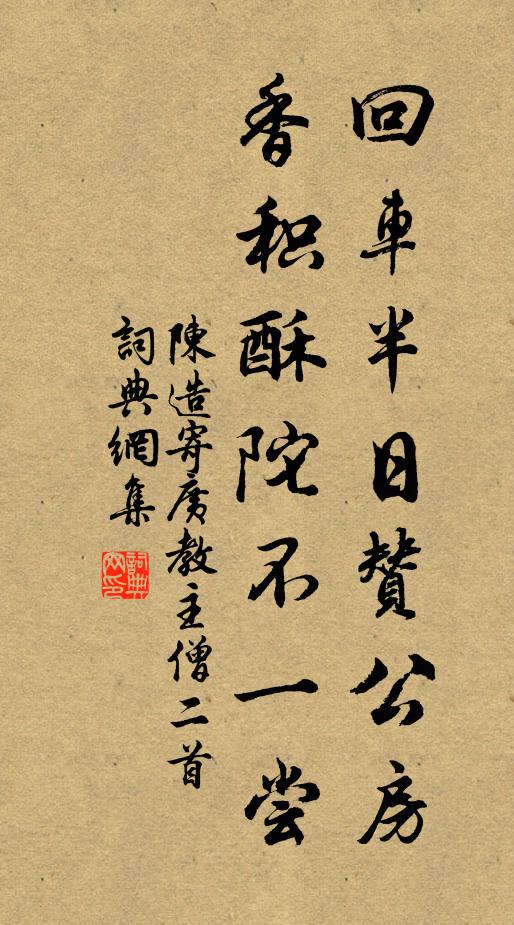 回車半日賛公房
香积酥陀不一尝
陳造寄廣教主僧二首
詞典網集
詞典網印